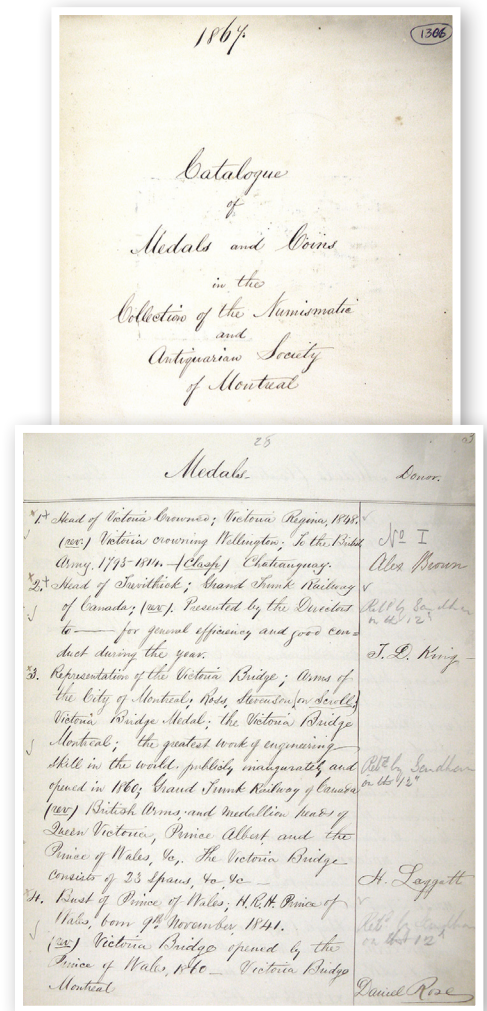 1867.
1306
Catalogue
of
Medals and Coins
in the
Collection of the Numismatic
and
Antiquarian Society
of Montreal
28
Medals.
Donor.
1. Head of Victoria Crowned; Victoria Regina, 1848.
(rev.) Victoria crowning Wellington; To the British
No I
Army. 1793-1814. (Clasp) Chateauguay.
Alex Brown
2. Head of Trevithick; Grand Trunk Railway
of Canada; (rev). Presented by the Directors
by Sandham
to — for general efficiency and good con-
on the 12"
duct during the year.
T. D. King
3. Representation of the Victoria Bridge; Arms of
the City of Montreal; Ross, Stevenson (on Scroll)
Victoria Bridge Medal; the Victoria Bridge
Montreal; the greatest work of engineering
skill in the world. publicly inaugurated and
by Sandham
opened in 1860; Grand Trunk Railway of Canada
on the 12"
(rev) British Arms, and medallion heads of
Queen Victoria, Prince Albert and the
Prince of Wales, &c,. The Victoria Bridge
consists of 23 Spans, &c. &c —
H. Laggatt
4. Bust of Prince of Wales; H.R.H. Prince of
Wales, born 9th November. 1841.
by Sandham
(rev) Victoria Bridge opened by the
on the 12
Prince of Wales, 1860 — Victoria Bridge
Montreal
Daniel Rose